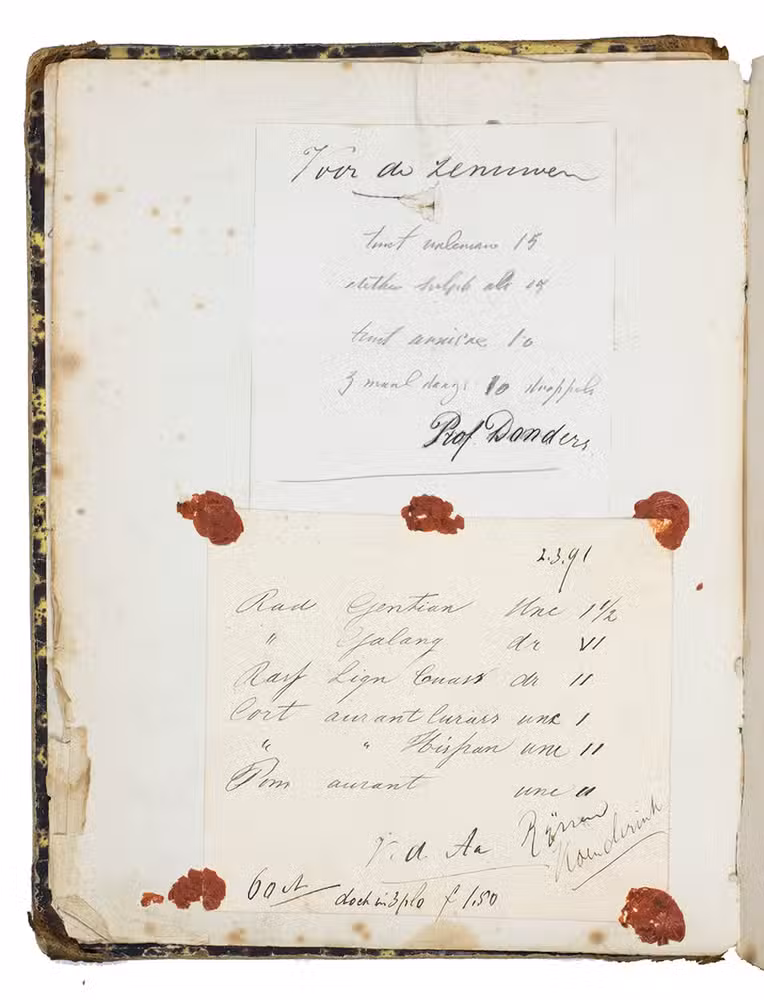 Voor de zenuwen
tinct valeriane 15
aether sulph alc 15
tinct arnicae 10
3 maal daags 10 droppels
Prof Donders
2.3.91
Rad Gentian Unc 1½
" Galang dr VI
Rasf Lign Quass dr II
Cort aurant Curass unc I
" " Hispan unc II
Pom aurant unc II
V. d. Aa
60 ct doch in 3plo f 1.50